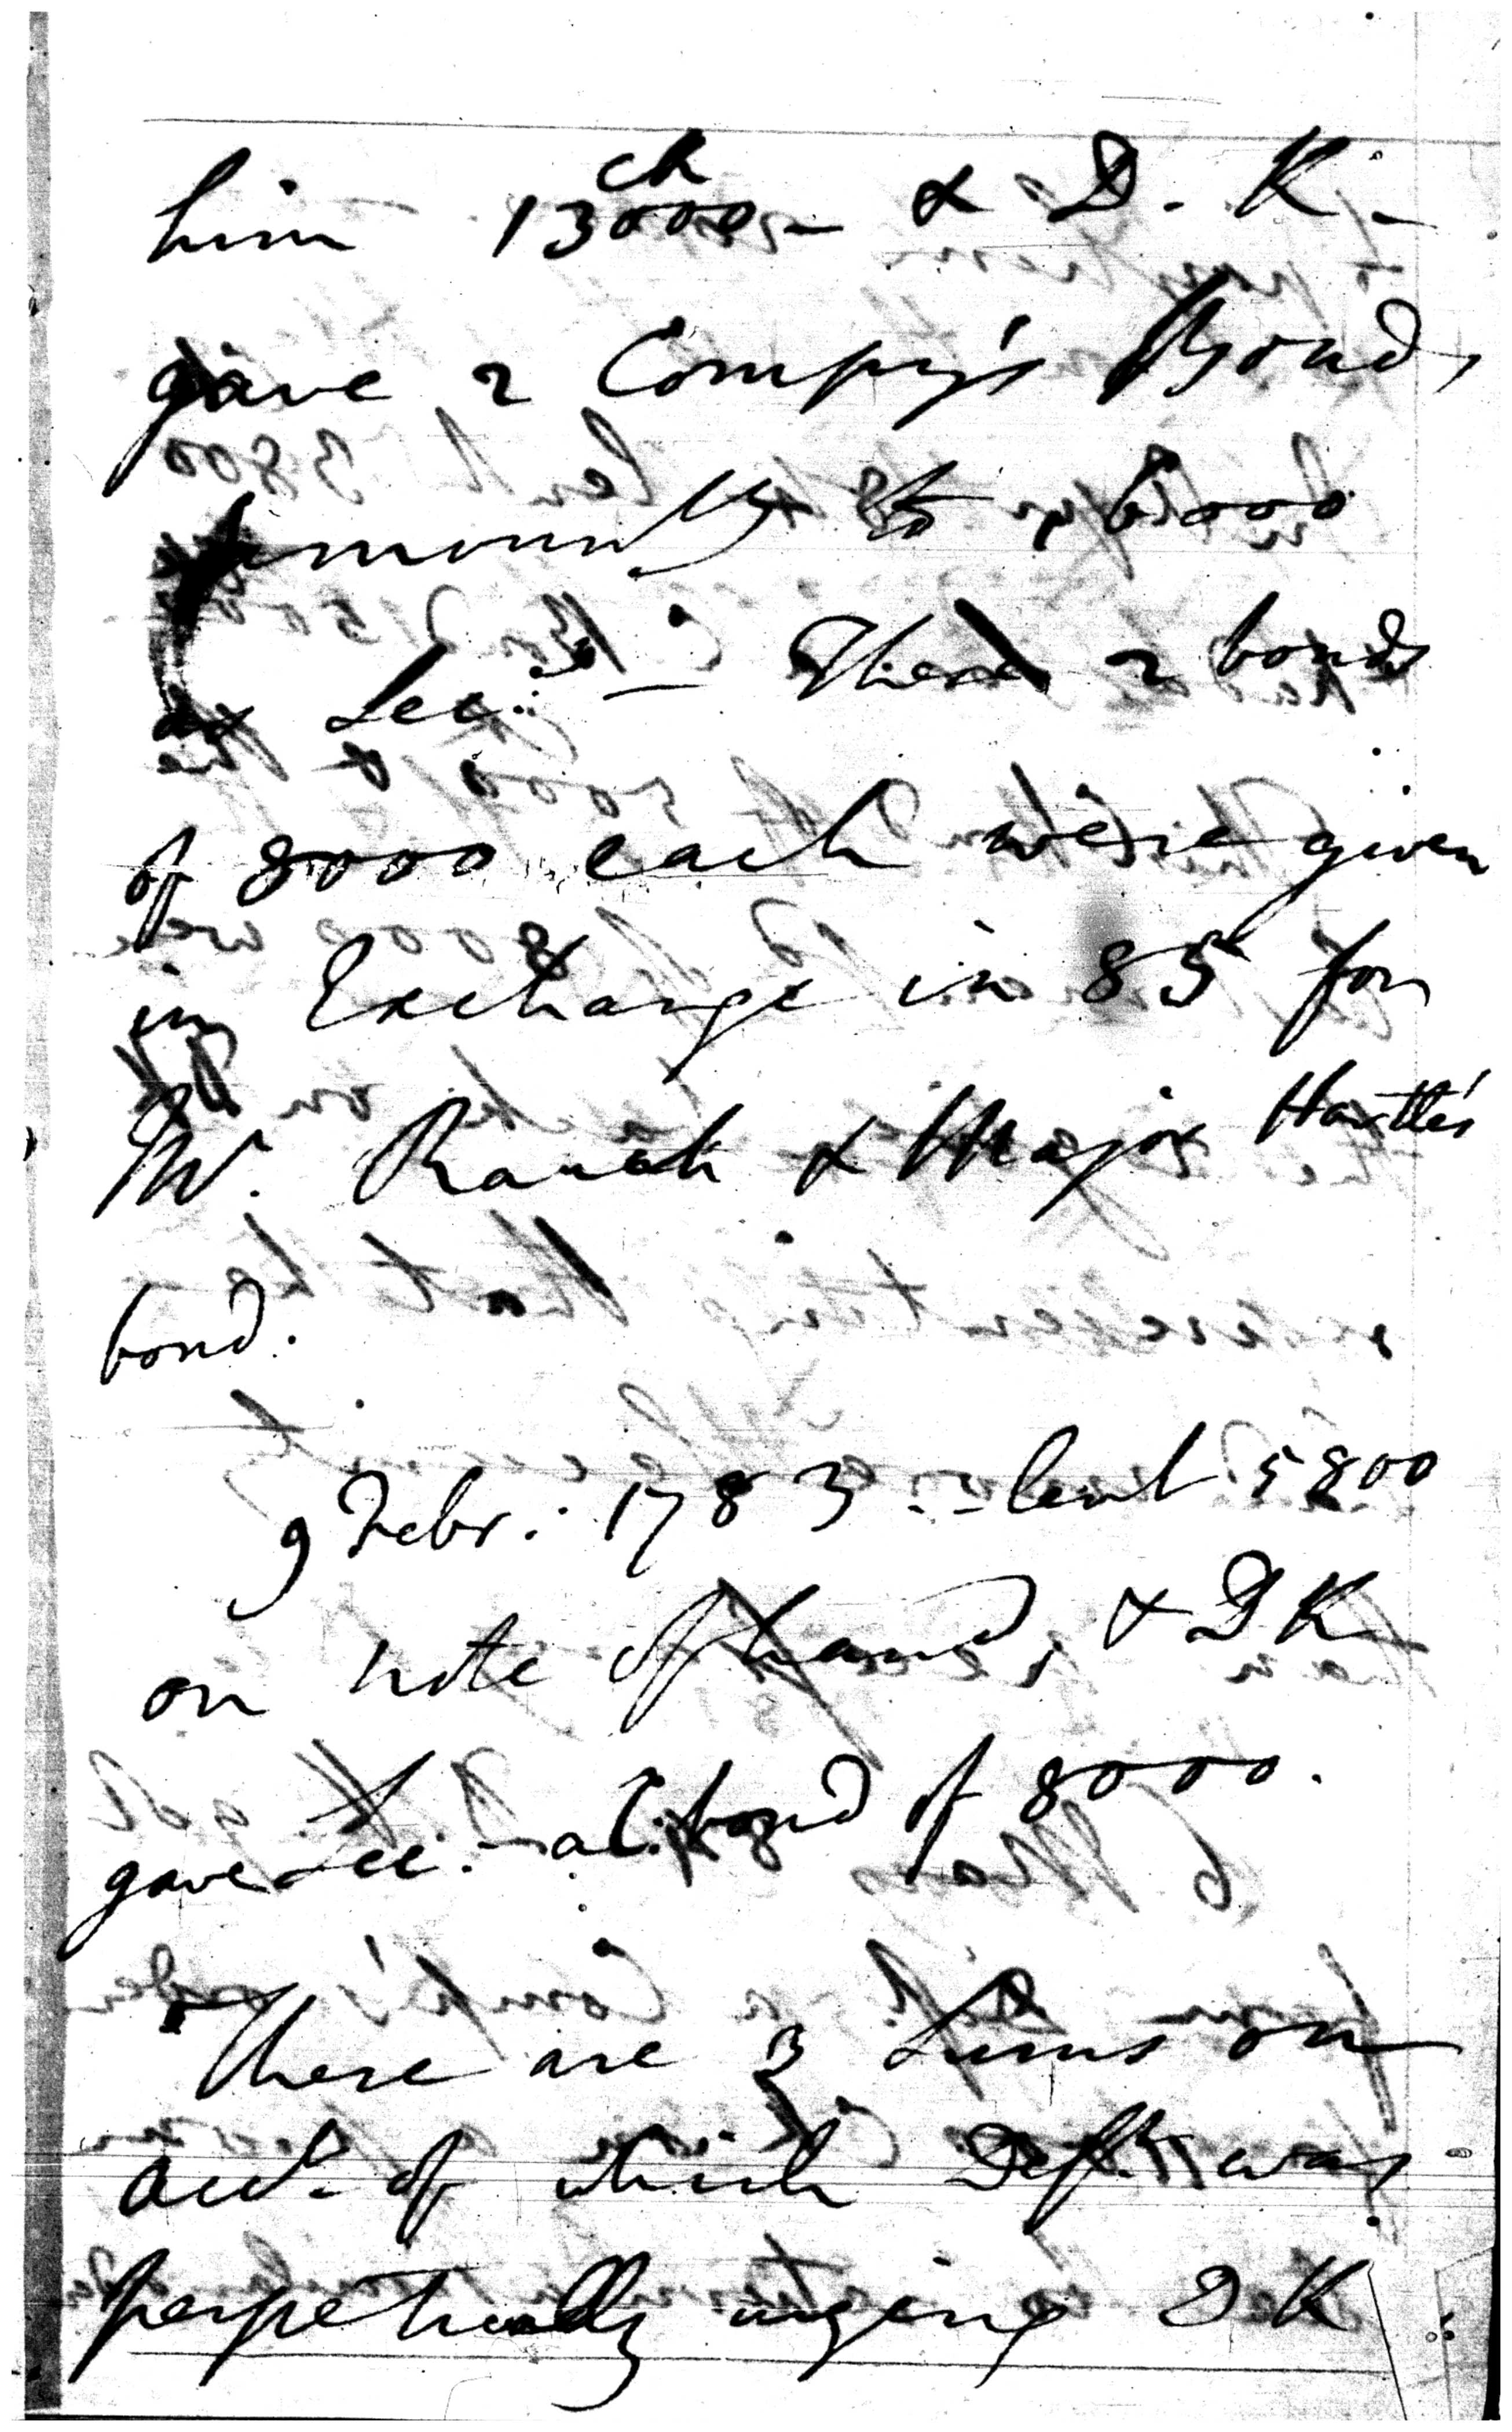 him 13000 ch - & D. K. -
gave 2 Compy's Bonds
amountg to 16000
as Sec: - These 2 bonds
of 8000 each were given
in Exchange in 85 for
Mr. & Major Hartle's
bond.
9 Febr: 1783 - lent 5800
on note of hand, & DK
gave Sec: a C. bond of 8000.
There are 3 Sums on
acct. of which Deft. was
perpetually urging DK